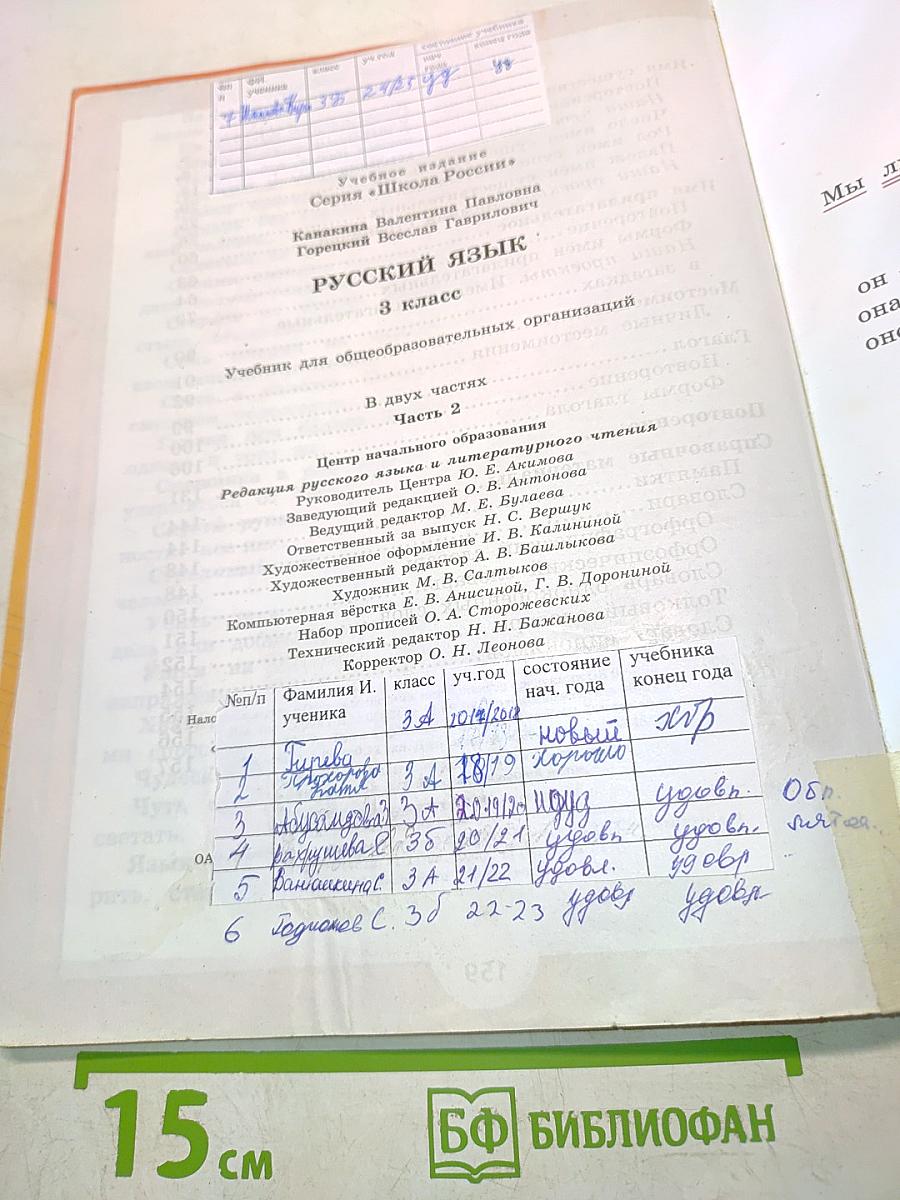 ученика
класс
уч.год
состояние учебника
нач. года
конец года
7 3Б 24/25 уд уд
Учебное издание
Серия «Школа России»
Канакина Валентина Павловна
Горецкий Всеслав Гаврилович
РУССКИЙ ЯЗЫК
3 класс
Учебник для общеобразовательных организаций
В двух частях
Часть 2
Центр начального образования
Редакция русского языка и литературного чтения
Руководитель Центра Ю. Е. Акимова
Заведующий редакцией О. В. Антонова
Ведущий редактор М. Е. Булаева
Ответственный за выпуск Н. С. Вершук
Художественное оформление И. В. Калининой
Художественный редактор А. В. Башлыкова
Художник М. В. Салтыков
Компьютерная вёрстка Е. В. Анисиной, Г. В. Дорониной
Набор прописей О. А. Сторожевских
Технический редактор Н. Н. Бажанова
Корректор О. Н. Леонова
Нало
№п/п Фамилия И. ученика класс уч.год состояние нач. года учебника конец года
1 3А 2017/2018 новый хор
2 Прохорова Катя 3 А 18/19 хорошо
3 3 А 2019/20 удовл.
4 Вахрушева 3б 20/21 удовл удовл.
5 Ваняшкина С. 3 А 21/22 удовл.
6 С. 3б 22-23 удовл удовл
ОА
159
Мы
он
она
оно
15 см
БФ БИБЛИОФАН